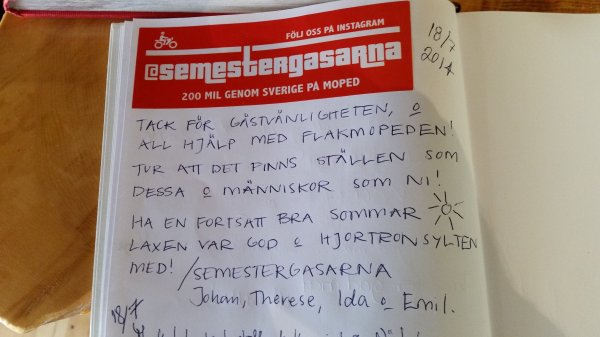 FÖLJ OSS PÅ INSTAGRAM
@semestergasarna
200 MIL GENOM SVERIGE PÅ MOPED
18/7
2014
TACK FÖR GÄSTVÄNLIGHETEN, o
ALL HJÄLP MED FLAKMOPEDEN!
TUR ATT DET FINNS STÄLLEN SOM
DESSA o MÄNNISKOR SOM NI!
HA EN FORTSATT BRA SOMMAR
LAXEN VAR GOD o HJORTRONSYLTEN
MED! /SEMESTERGASARNA
Johan, Therese, Ida o Emil.
18/7